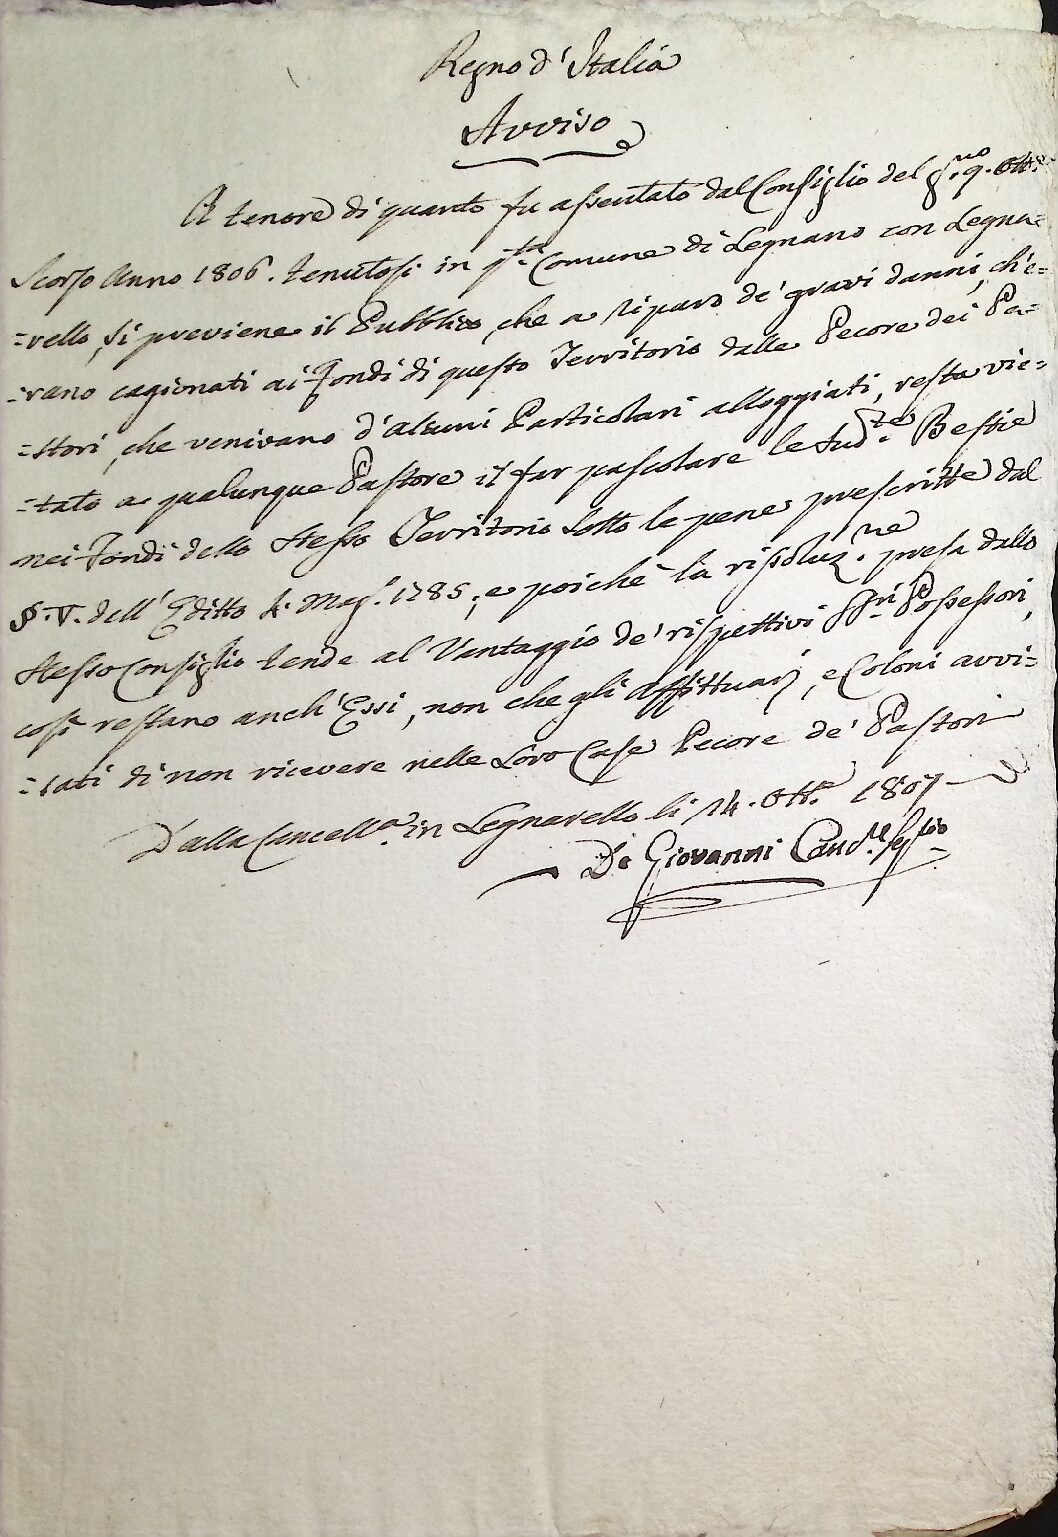 Regno d'Italia
Avviso
A tenore di quanto fu assentato dal Consiglio del g.no 9. Ott.e
Scorso Anno 1806. tenutosi in q.sta Comune di Legnano con Legna=
=rello, si previene il Pubblico, che a riparo de' gravi danni, ch'e=
=rano cagionati ai Fondi di questo Territorio dalle Pecore dei Pa=
=stori, che venivano d'alcuni Particolari alloggiati, resta vie=
=tato a qualunque Pastore il far pascolare le sud.te Bestie
nei Fondi dello stesso Territorio sotto le pene prescritte dal
§. V. dell'Editto 4. Mag.o 1785.; e poichè la risoluz.ne presa dallo
stesso Consiglio tende al Vantaggio de' rispettivi SS.ri Possessori,
così restano anch'Essi, non che gli Affittuarj, e Coloni avvi=
=sati di non ricevere nelle Loro Case Pecore de' Pastori
Dalla Cancell.a in Legnarello li 14. Ott.e 1807
De Giovanni Canc.re